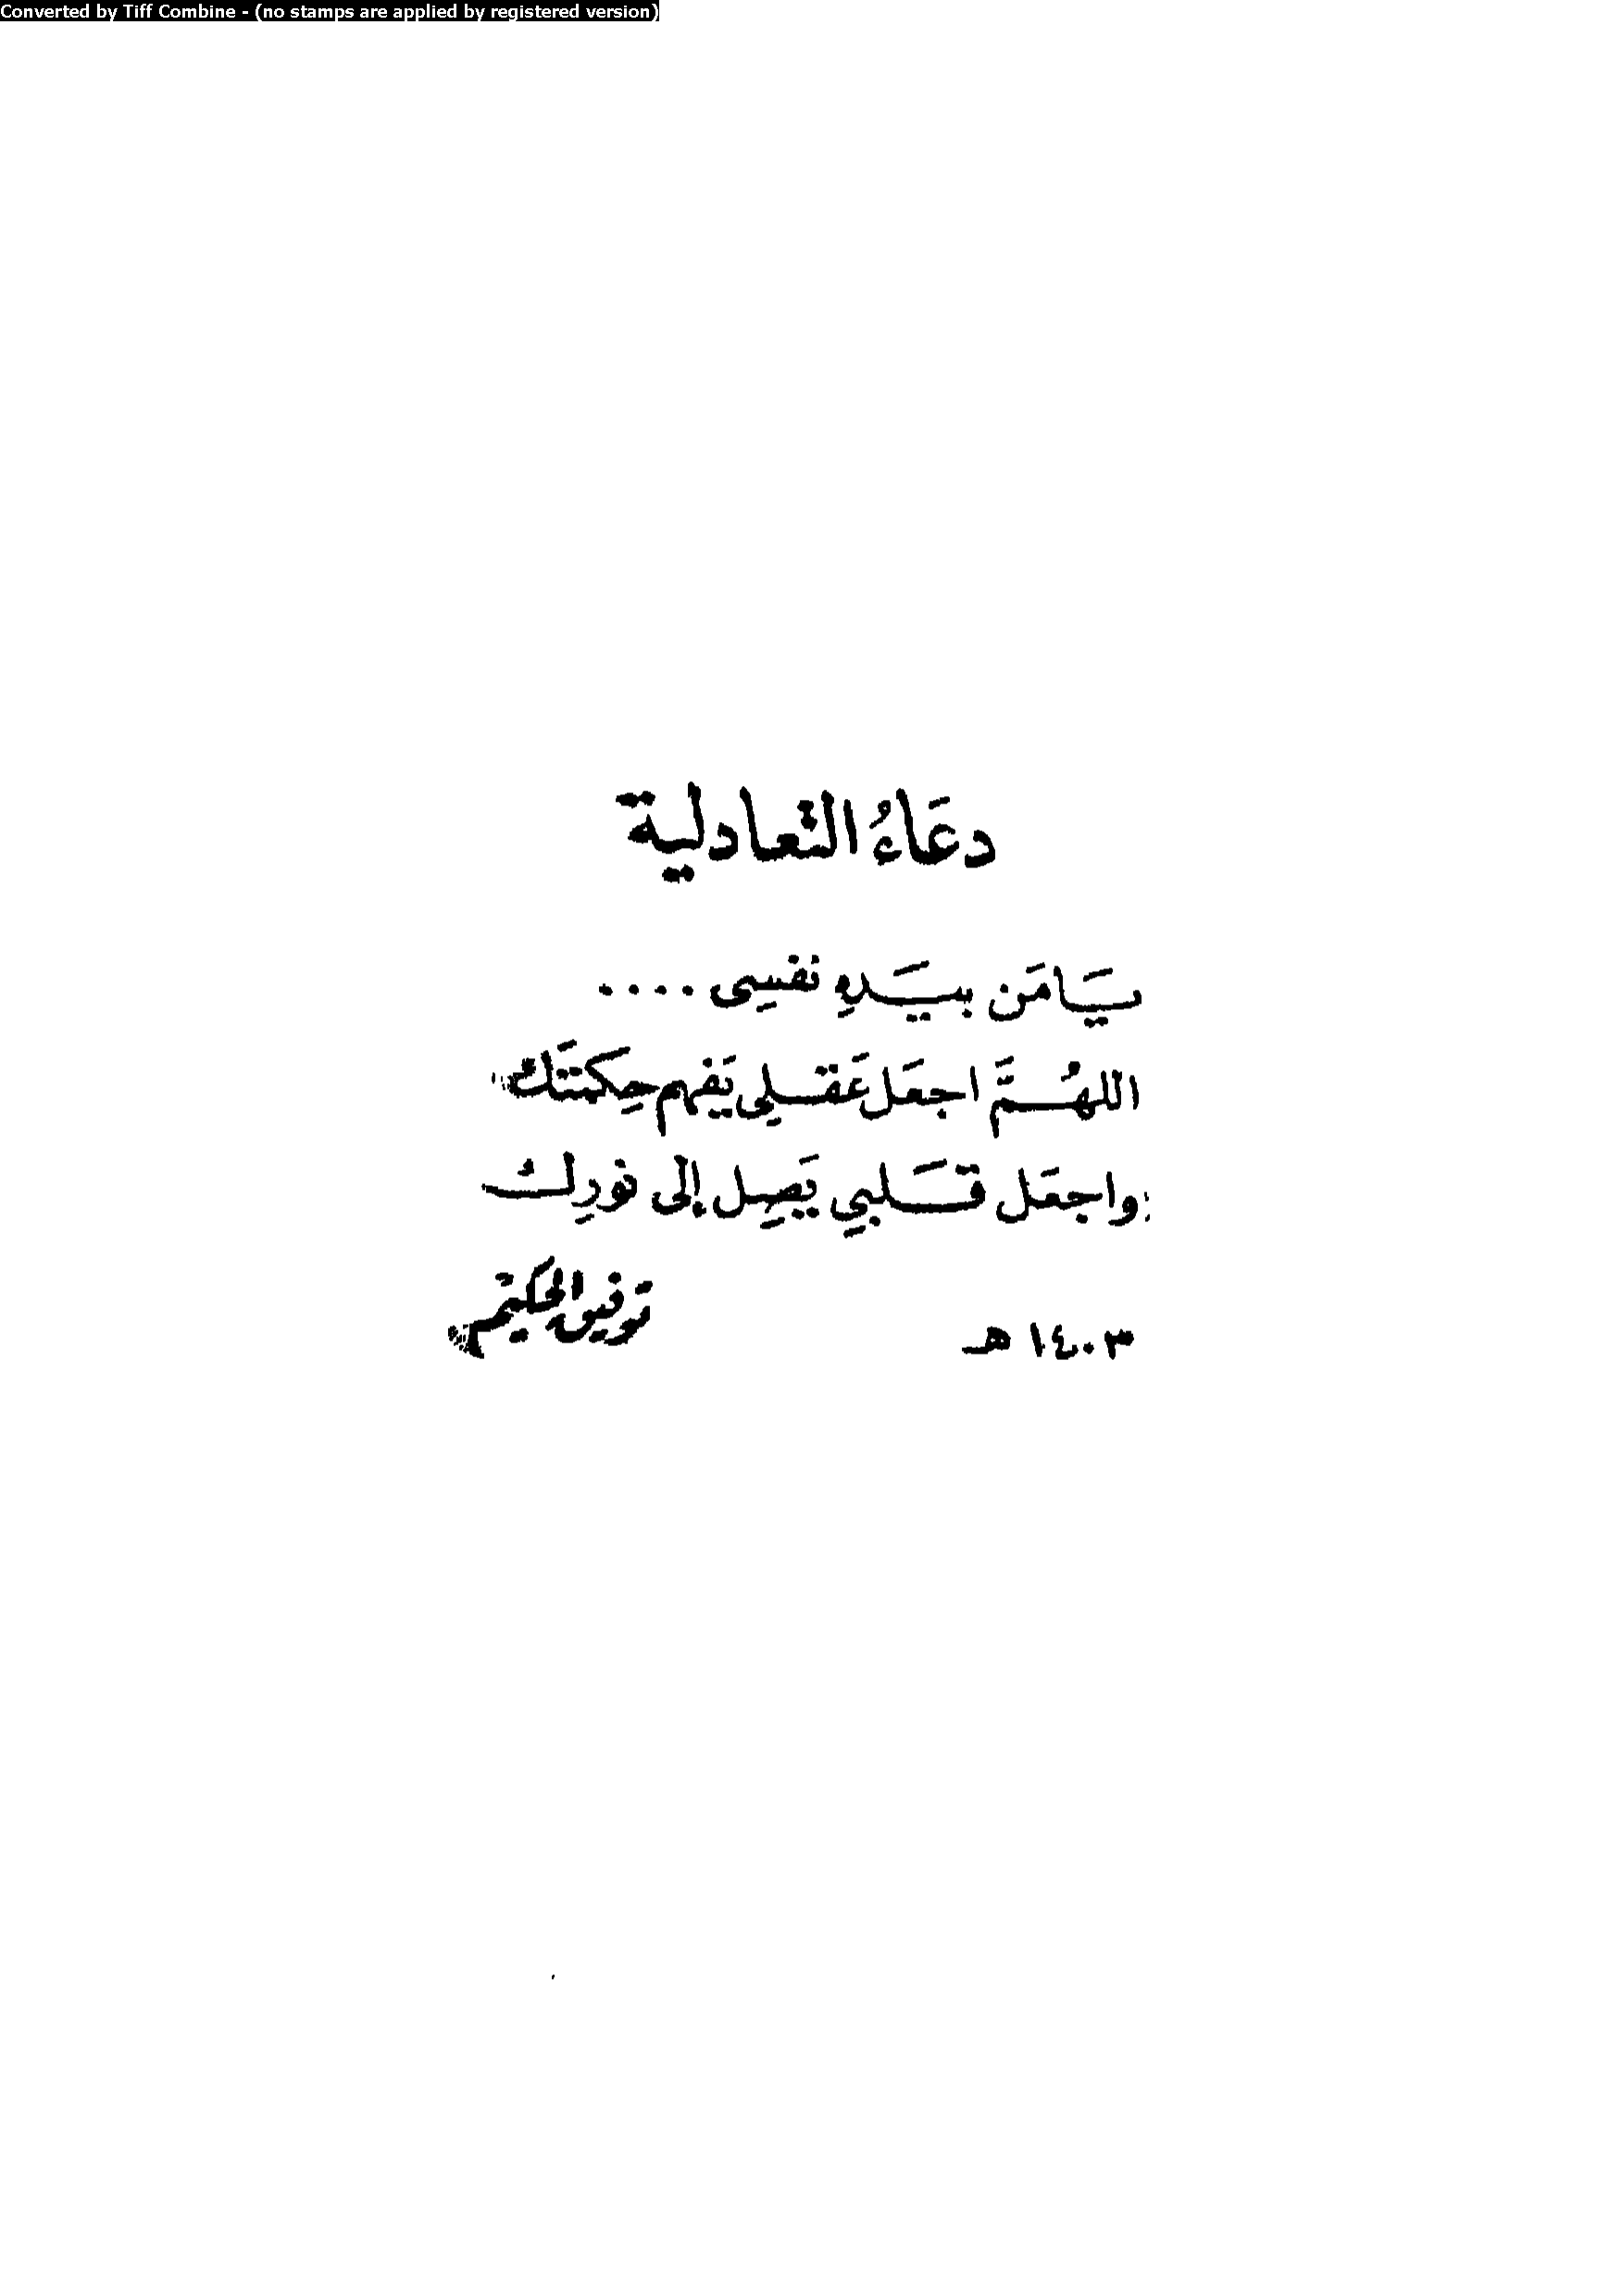 Converted by Tiff Combine - (no stamps are applied by registered version)
دعَاءُ التعادلية
يَامَن بيَدهِ نفسِى ....
اللهُمَّ اجعَل عَقلِى يَفهم حِكمتَك
واجعَل قَلبِي يَصِل إلى نورِك
١٤٠٣ هـ توفيق الحكيم